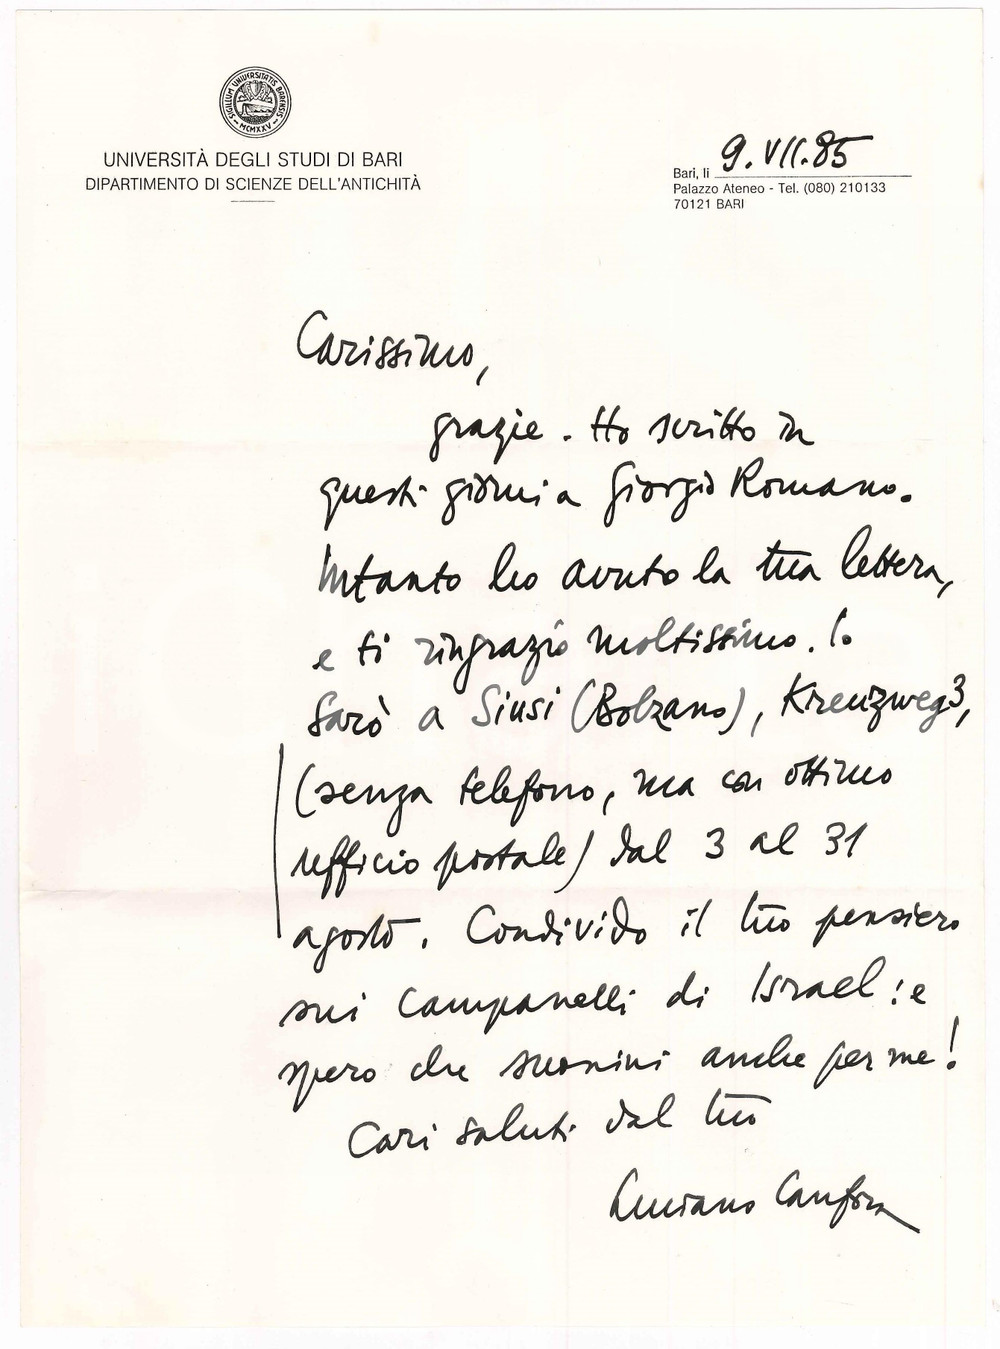 SIGILLUM UNIVERSITATIS BARENSIS
MCMXXV
UNIVERSITÀ DEGLI STUDI DI BARI
DIPARTIMENTO DI SCIENZE DELL'ANTICHITÀ
Bari, li 9.VII.85
Palazzo Ateneo - Tel. (080) 210133
70121 BARI
Carissimo,
grazie. Ho scritto in
questi giorni a Giorgio Romano.
Intanto ho avuto la tua lettera,
e ti ringrazio moltissimo. Io
sarò a Siusi (Bolzano), Kreuzweg 3,
(senza telefono, ma con ottimo
ufficio postale) dal 3 al 31
agosto. Condivido il tuo pensiero
sui Campanelli di Israel: e
spero che suonini anche per me!
Cari saluti dal tuo
Luciano Canfora